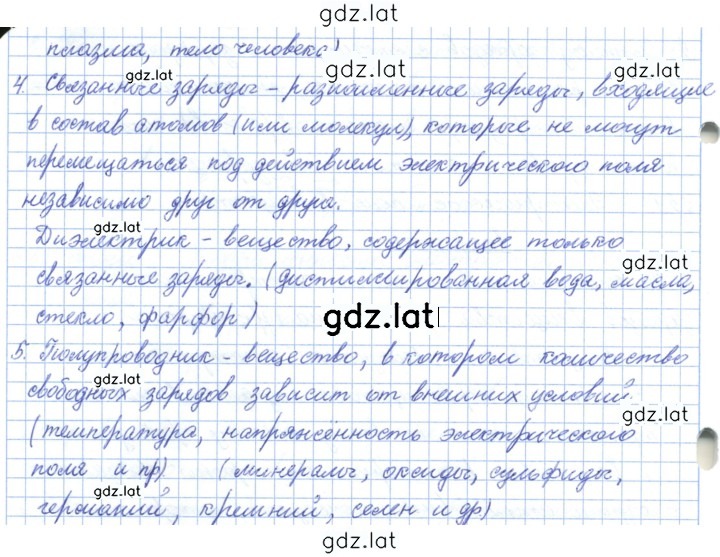 gdz.lat
плазма, тело человека)
gdz.lat
gdz.lat
4. Связанные заряды – разноименные заряды, входящие
в состав атомов (или молекул), которые не могут
gdz.lat
перемещаться под действием электрического поля
независимо друг от друга.
gdz.lat
Диэлектрик – вещество, содержащее только
gdz.lat
связанные заряды. (дистиллированная вода, масла,
стекло, фарфор)
gdz.lat
5. Полупроводник – вещество, в котором количество
gdz.lat
свободных зарядов зависит от внешних условий.
gdz.lat
(температура, напряженность электрического
поля и пр) (минералы, оксиды, сульфиды,
gdz.lat
германий, кремний, селен и др)
gdz.lat
gdz.lat